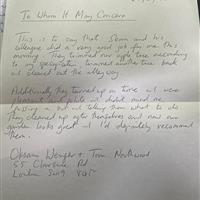 To Whom It May Concern
This is to say that Sean and his
colleague did a very good job for me this
morning. They trimmed our apple tree according
to my specification, trimmed another tree back
and cleared out the alleyway.
Additionally they turned up on time and were
pleasant and polite and didn't mind me
fussing and telling them what to do.
They cleaned up after themselves and now our
garden looks great and I'd definitely recommend
them.
+ Tom Northwood
55 Rd
London